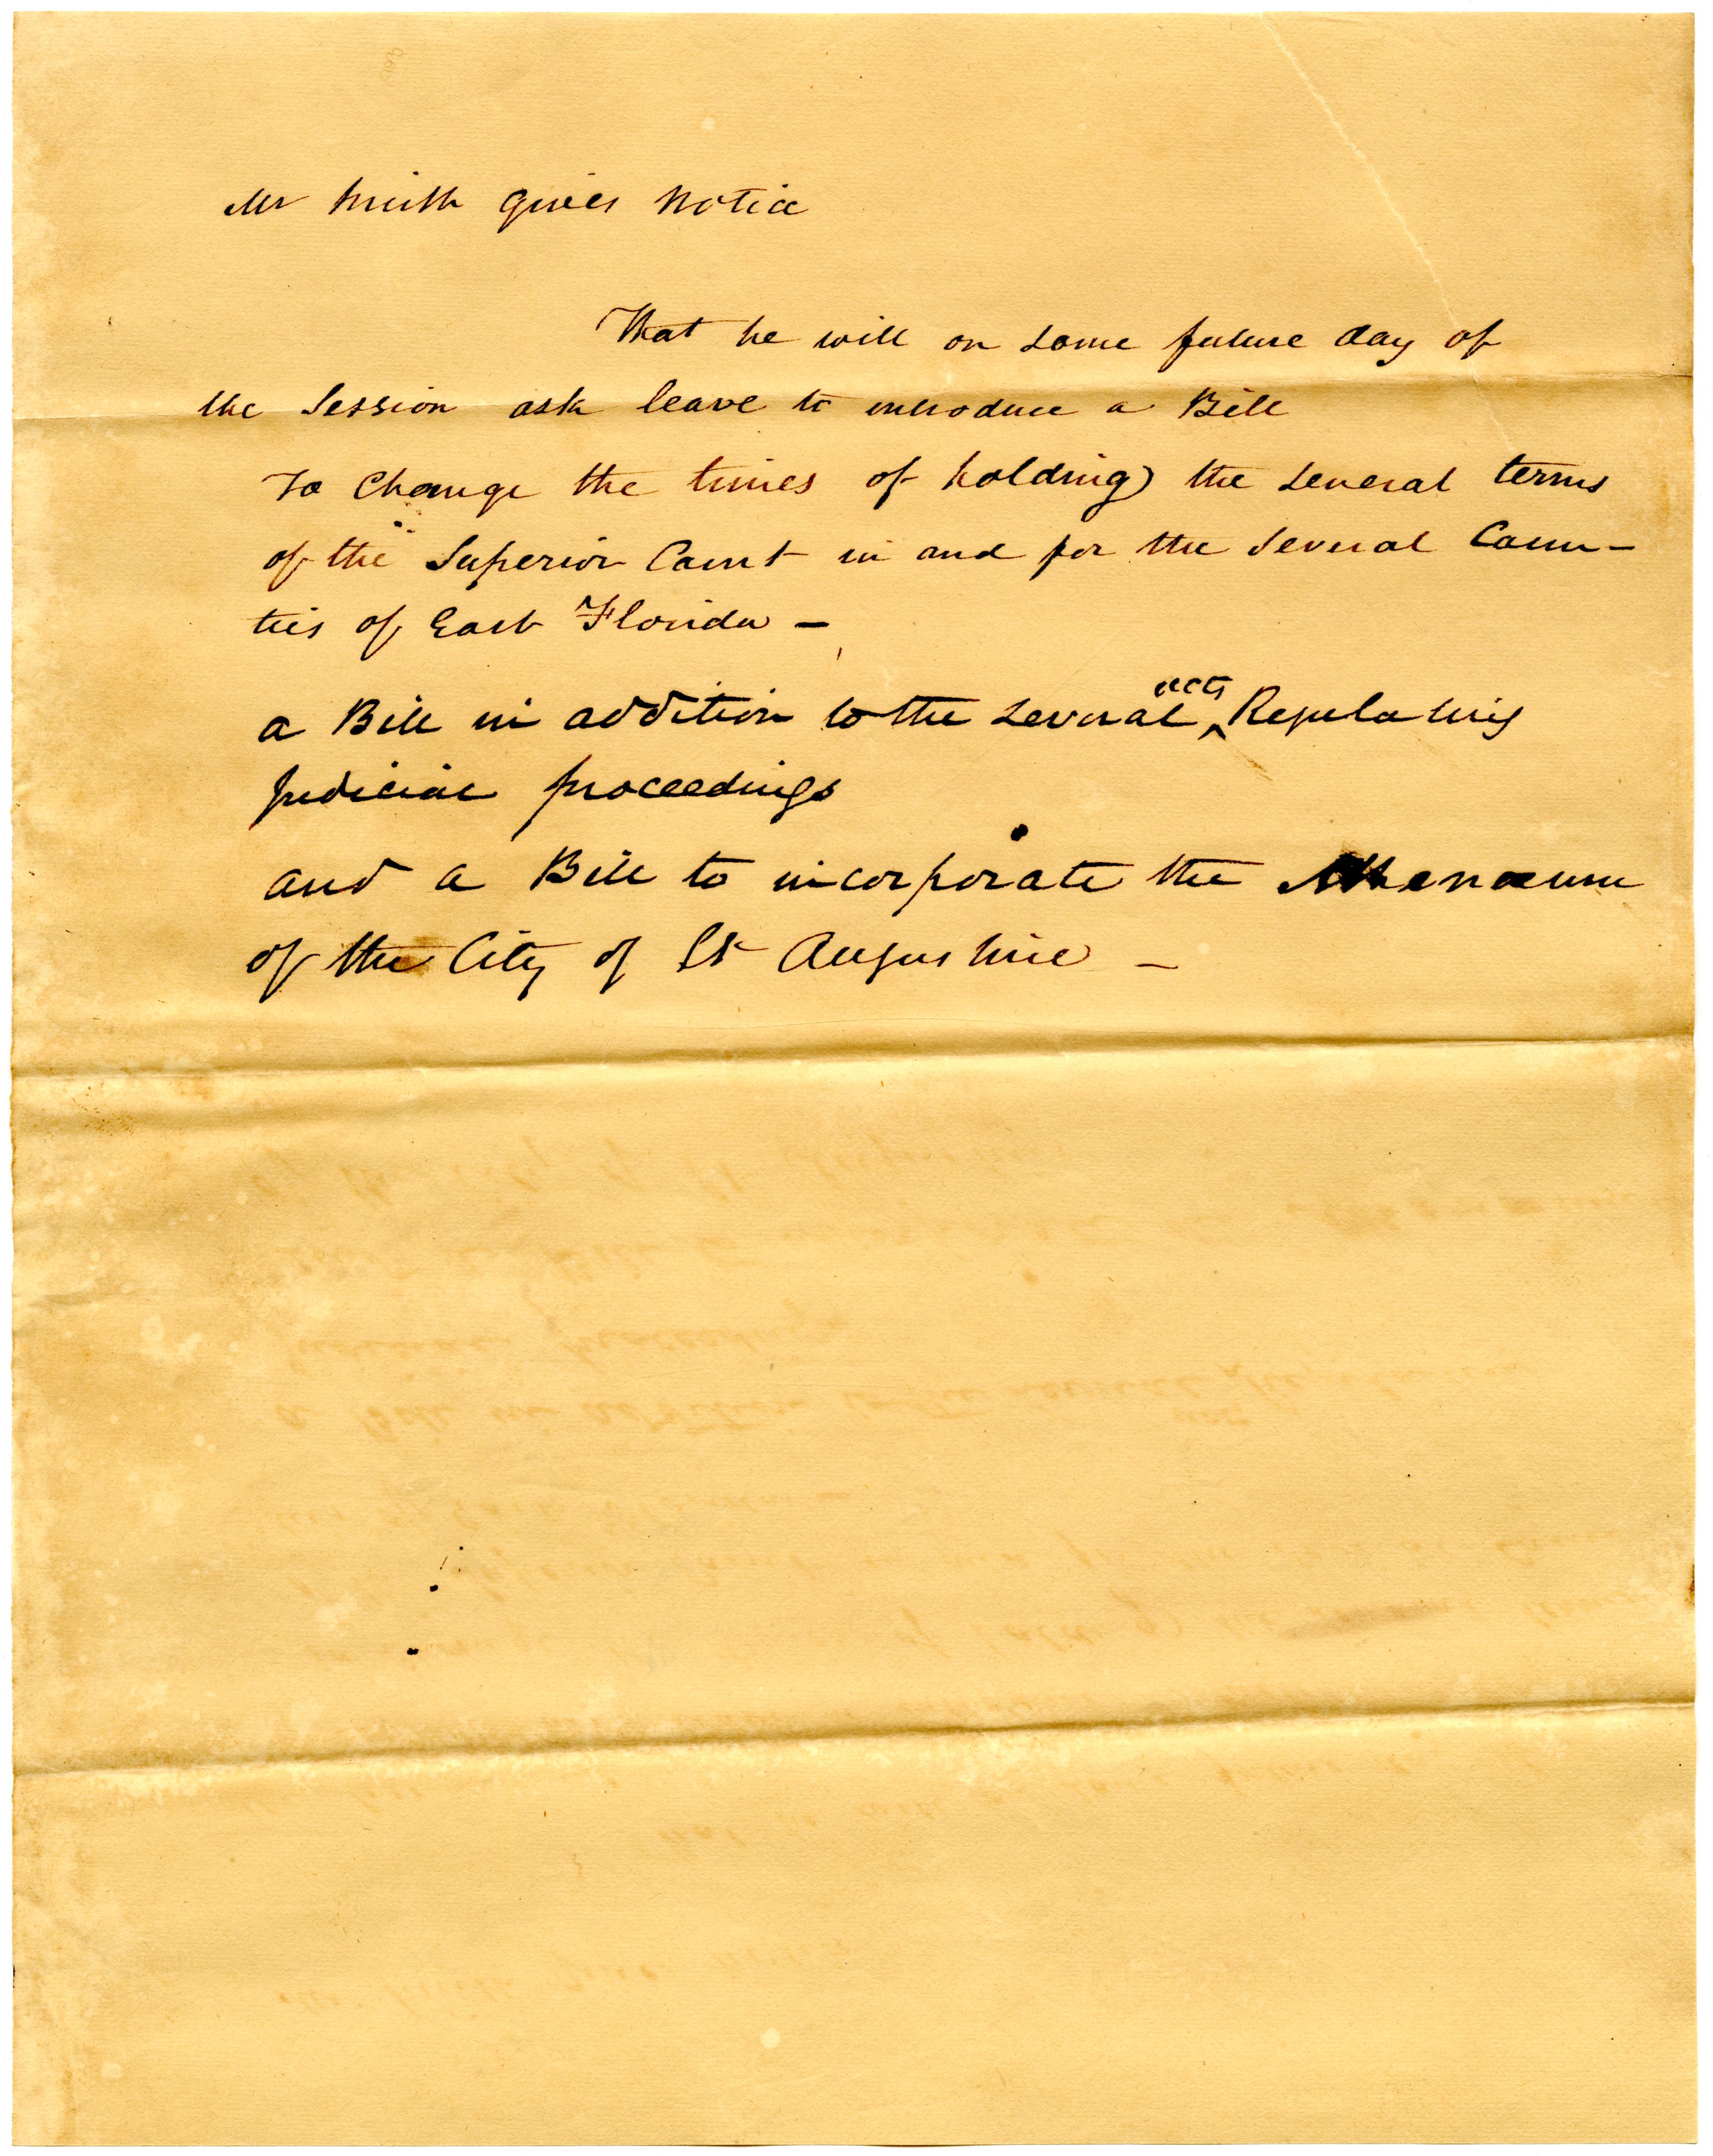 Mr Smith gives Notice
That he will on some future day of
the Session ask leave to introduce a Bill
To Change the times of holding the several terms
of the Superior Court in and for the several Coun-
ties of East Florida -
a Bill in addition to the several acts Regulating
judicial proceedings
and a Bill to incorporate the Athenaeum
of the City of St Augustine -